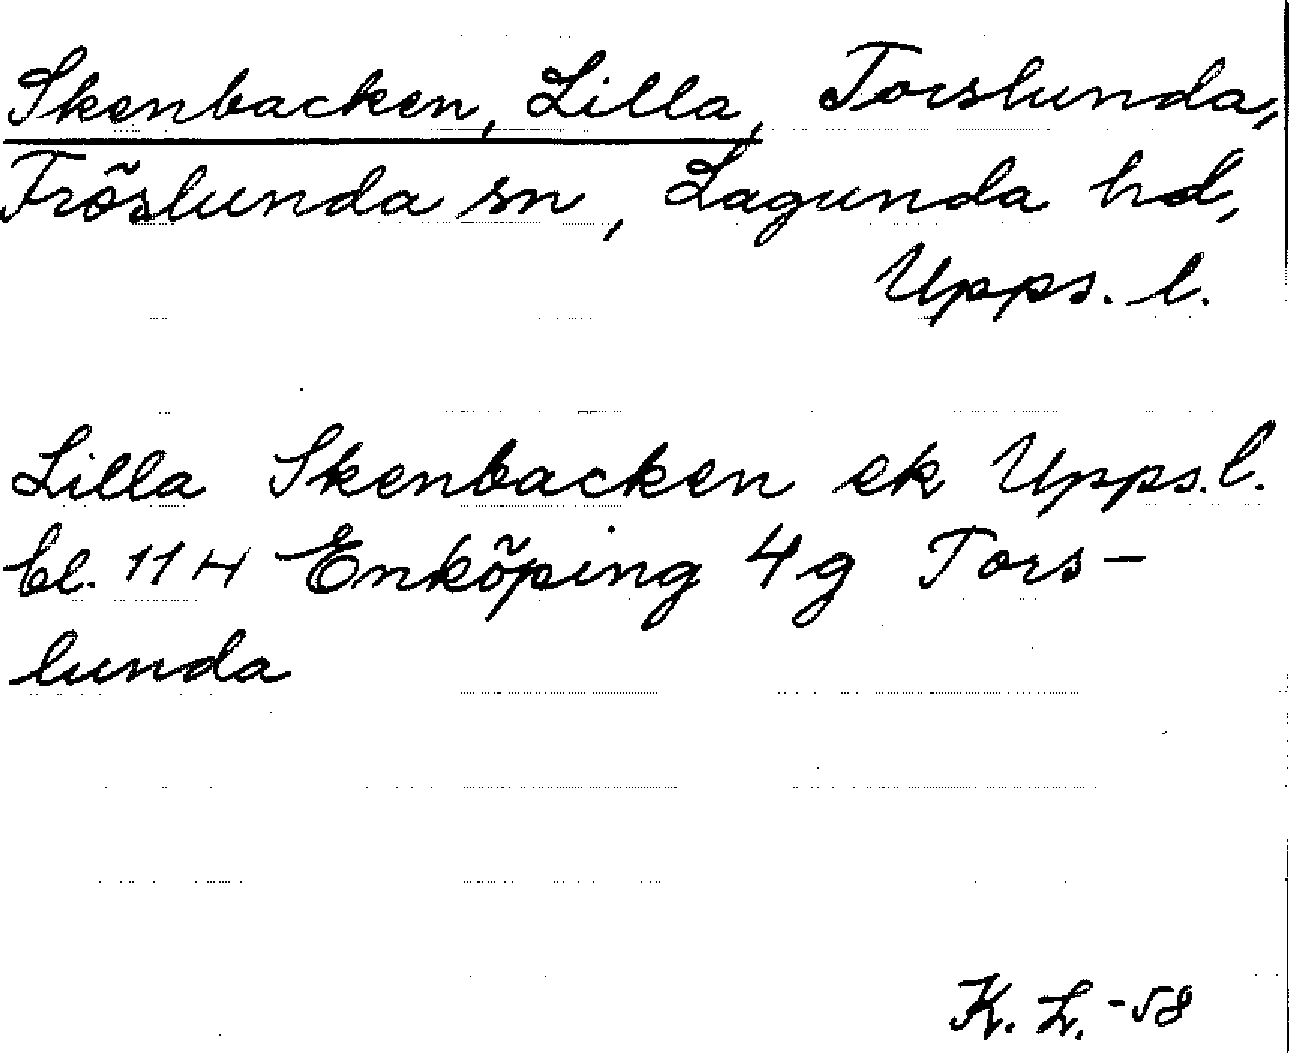 Skenbacken, Lilla, Torslunda,
Fröslunda sn, Lagunda hd,
Upps. l.
Lilla Skenbacken ek Upps. l.
bl. 11 H Enköping 4 g Tors-
lunda
K. L. -58